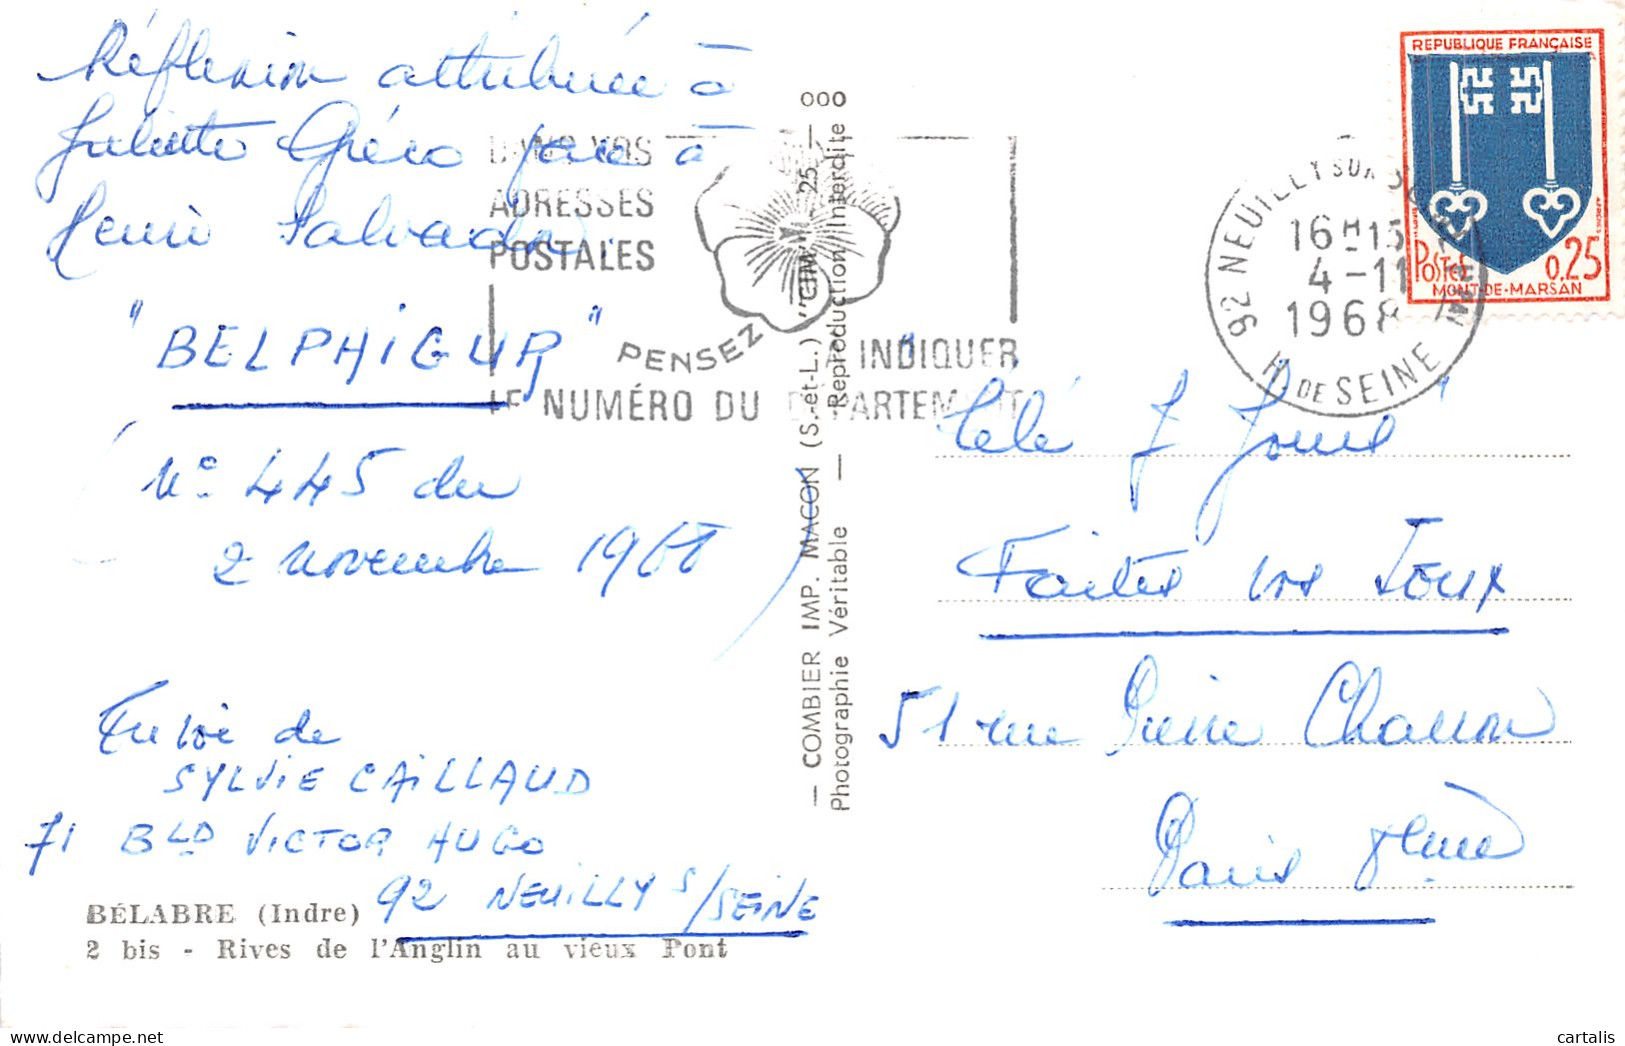 Réflexion attribuée à
Juliette Gréco face à
Henri Salvador.
"BELPHIGUR"
(N° 445 du
2 novembre 1968)
Envoi de
SYLVIE CAILLAUD
71 BLD VICTOR HUGO
92 NEUILLY S/SEINE
BÉLABRE (Indre)
2 bis - Rives de l'Anglin au vieux Pont
DANS VOS
ADRESSES
POSTALES
PENSEZ
INDIQUER
LE NUMÉRO DU DÉPARTEMENT
— COMBIER IMP. MACON (S.-et-L.) "CIM" — 25 — 000
Photographie Véritable — Reproduction Interdite
92 NEUILLY SUR SEINE
16H15
4-11
1968
H. DE SEINE
REPUBLIQUE FRANÇAISE
POSTES
0,25
MONT-DE-MARSAN
"Télé 7 Jours"
Faites vos Jeux
51 rue Pierre Charron
Paris 8ème
cartalis